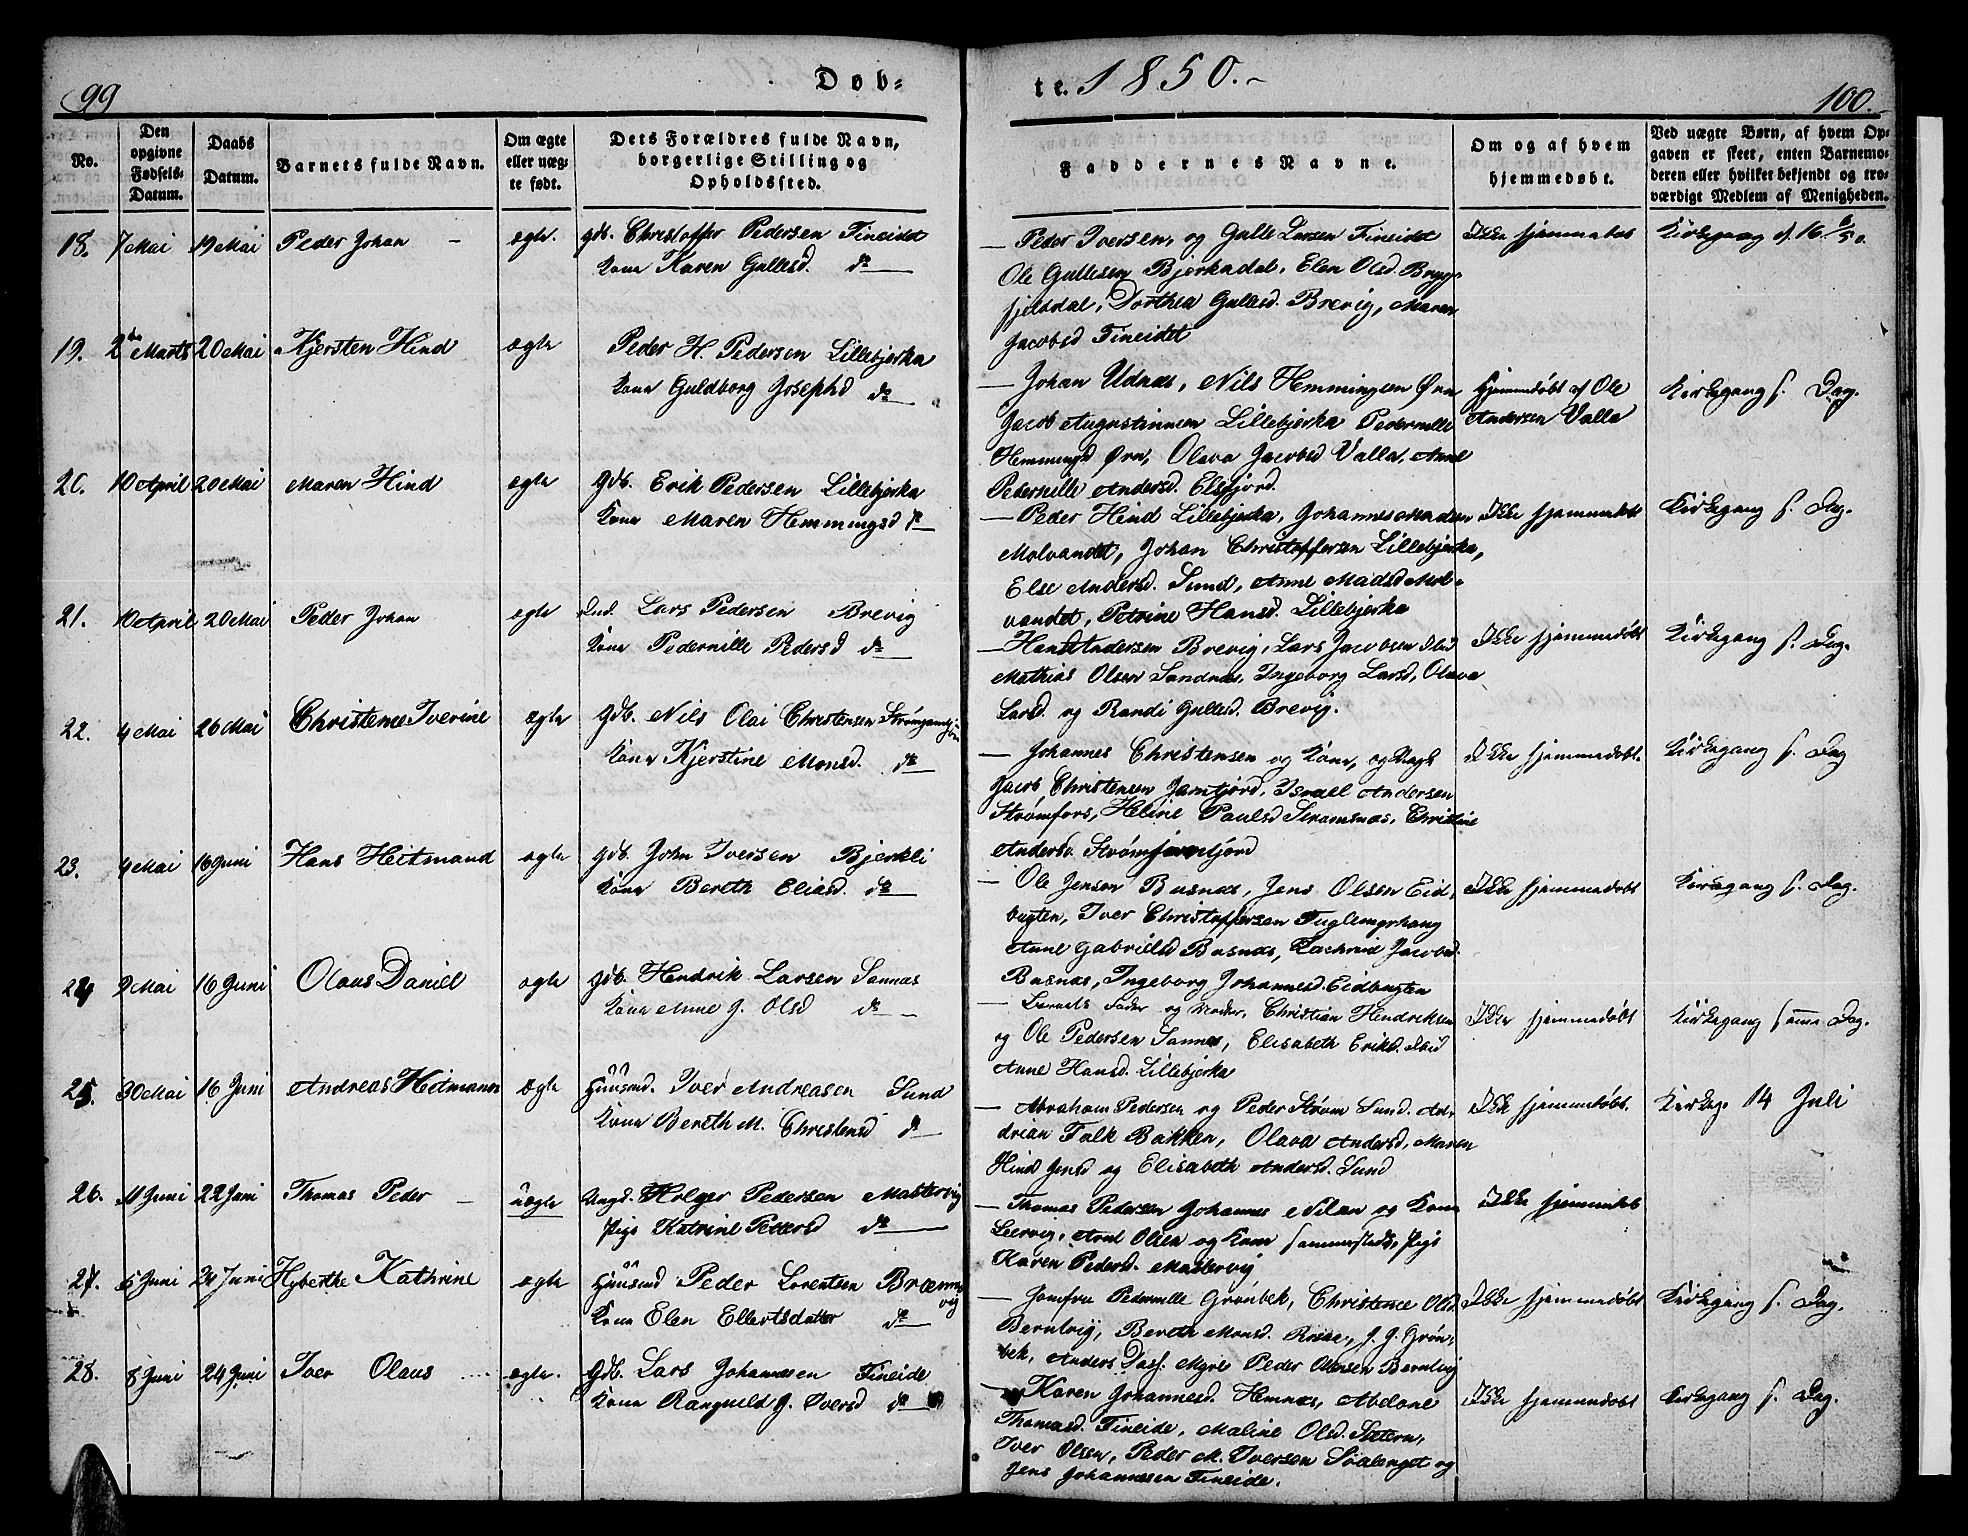 99
Døb-
te. 1850.-
100.
No.
Den opgivne Fødsels-Datum.
Daabs Datum.
Barnets fulde Navn.
Om ægte eller uæg-te født.
Dets Forældres fulde Navn, borgerlige Stilling og Opholdssted.
Faddernes Navne.
Om og af hvem hjemmedøbt.
Ved uægte Børn, af hvem Op-gaven er skeet, enten Barnemo-deren eller hvilket bekjendt og tro-værdigt Medlem af Menigheden.
18. 7 Mai 19 Mai Peder Johan - ægte. gdb. Christoffer Pedersen Fineidet
Kone Karen Gullesd. do
- Peder Iversen, og Gulle Larsen Fineidet
Ole Gullesen Bjerkadal, Elen Olsd. Bryg-
fjeldal, Dorthea Gullesd. Brevig, Maren
Jacobsd Fineidet
Ikke hjemmebøt
Kirkegang d. 16
19. 2den Marts 20 Mai Kjersten Hind ægte Peder H. Pedersen Lillebjerka
Kone Guldborg Josephsd do
- Johan Udnæs, Nils Hemmingsen Ørn
Jacob Augustinusen Lillebjerka Pedernille
Hemmingsd Ørn, Olava Jacobsd Valla, Anne
Pedernille Andersd. Elsfjord.
Hjemmedøbt af Ole
Andersen Valla
Kirkegang s. Dag.
20. 10 April 20 Mai Maren Hind ægte gdb. Erik Pedersen Lillebjerka
Kone Maren Hemmingsd do
- Peder Hind Lillebjerka, Johannes Madsen
Molvandet, Johan Christoffersen Lillebjerka,
Else Andersd. Sund, Anne Madsd Mol-
vandet, Petrine Hansd. Lillebjerka
Ikke hjemmedøbt
Kirkegang s. Dag.
21. 10 April 20 Mai Peder Johan ægte Ind. Lars Pedersen Brevig
Kone Pedernille Pedersd do
- Hans Andersen Brevig, Lars Jacobsen Ibid
Mathias Olsen Sandnæs, Ingeborg Larsd, Olava
Larsd. og Randi Gullesd. Brevig.
Ikke hjemmedøbt
Kirkegang s. Dag.
22. 4 Mai 26 Mai Christence Iverine ægte gdb. Nils Olai Christensen
Kone Kjerstine Monsd. do
- Johannes Christensen og Kone, og
Jacob Christensen Jamtjord, Israel Andersen
Strømfors, Heline Paulsd Stramsnæs, Christine
Andersd. Strømfors
Ikke hjemmedøbt.
Kirkegang s. Dag
23. 4 Mai 16 Juni Hans Heitmand ægte gdb. John Iversen Bjerkli
Kone Bereth Eliasd. do
- Ole Jensen Busnæs, Jens Olsen Eid-
bugten, Iver Christoffersen Fuglemyrhaug
Anne Gabrielsd Busnæs, Zachrine Jacobsd.
Busnæs, Ingeborg Johannesd. Eidbugten
Ikke hjemmedøbt
Kirkegang s. Dag.
24 9 Mai 16 Juni Olaus Daniel ægte gdb. Hendrik Larsen Sannæs
Kone Anne J. Olsd do
- Barnets Fader og Moder, Christian Hendriksen
og Ole Pedersen Sannæs, Elisabeth Eriksd. Ibid
Anne Hansd. Lillebjerka
Ikke hjemmedøbt
Kirkegang samme Dag.
25. 30 Mai 16 Juni Andreas Heitmann ægte Huusmd. Iver Andreasen Sund
Kone Bereth M. Christensd do
- Abraham Pedersen og Peder Strøm Sund. An-
drian Falk Bakken, Olava Andersd, Maren
Hind Jensd og Elisabeth Andersd. Sund
Ikke hjemmedøbt.
Kirkeg. 14 Juli
26. 11 Juni 22 Juni Thomas Peder - uægte Ungd. Holger Pedersen Mastervig
Pige Katrine Petersd do
- Thomas Pedersen Johannes Nilsen og Kone
Leervig, Arnt Olsen og Kone sammesteds, Pige
Karen Pedersd. Mastervig
Ikke hjemmedøbt
27. 5 Juni 24 Juni Hyberthe Kathrine ægte Huusmd Peder Lorentsen Bræmn-
vig
Kone Elen Ellertsdatter do
- Jomfru Pedernille Grønbek, Christence Olsd
Bernlvig, Bereth Monsd. Rosse, J. G. Grøn-
bek, Anders Myre Peder Olsen Bernlvig
Ikke hjemmedøbt
Kirkegang s. Dag.
28. 8 Juni 24 Juni Iver Olaus ægte. gdb. Lars Johannesen Fineide
Kone Rangneld J. Iversd do
- Karen Johannesd. Hemnæs, Abelone
Thomasd. Fineide, Maline Olsd. Sætern,
Iver Olsen, Peder M. Iversen Svalenget og
Jens Johannesen Fineide.
Ikke hjemmedøbt
Kirkegang s. Dag.